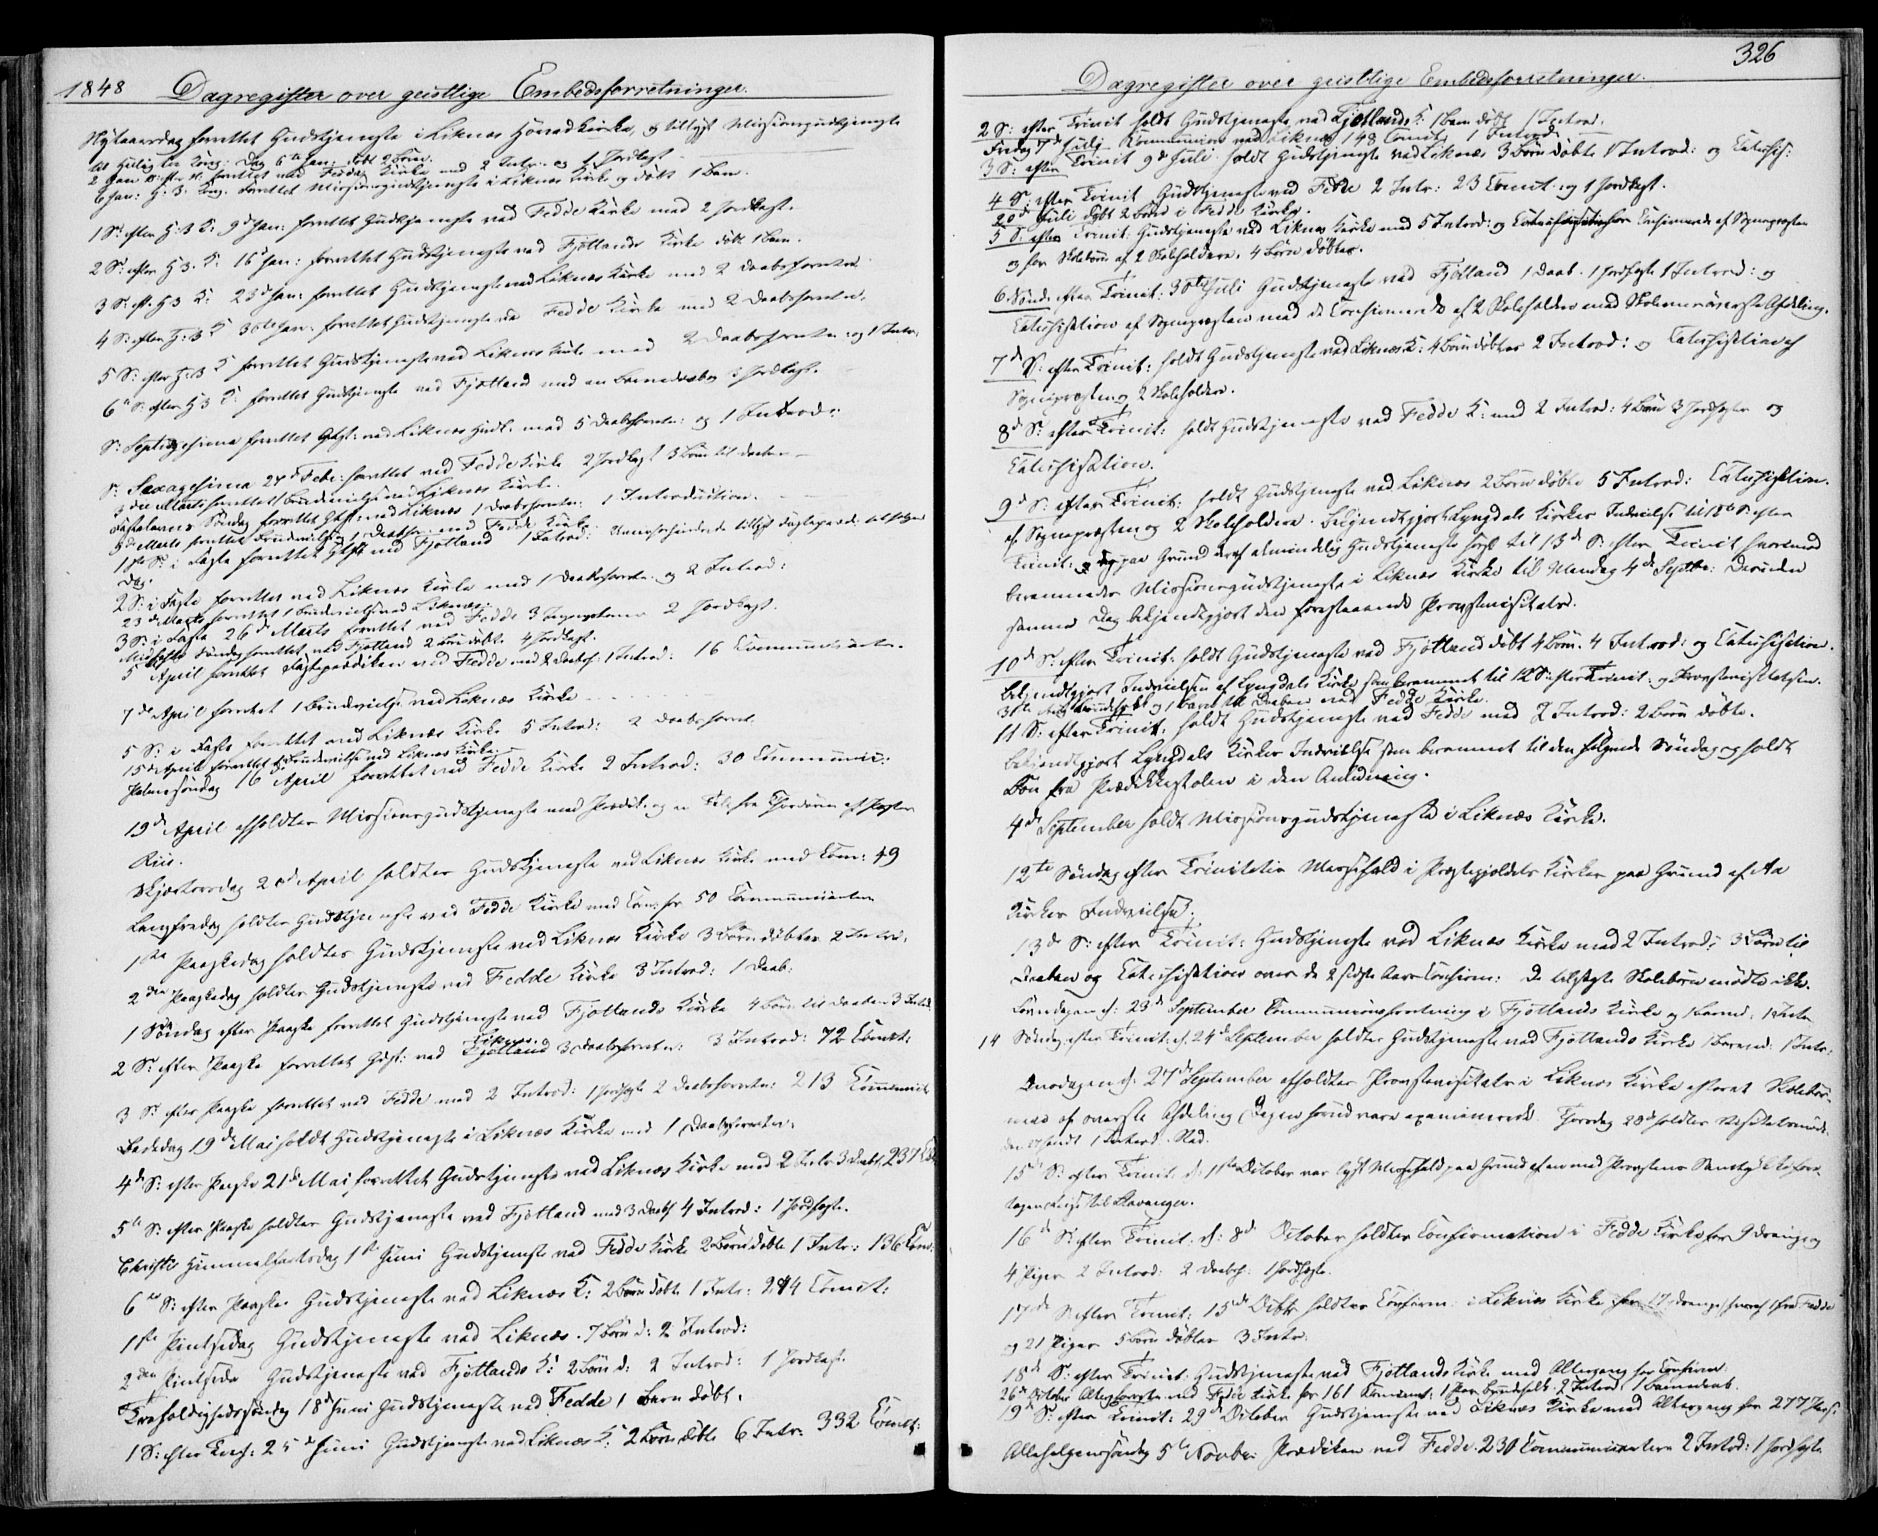 1848 Dagregister over geistlige Embedsforretninger.
Nytaarsdag forrettet Gudstjeneste i Liknæs Hovedkirke, og tillyst Missionsgudstjeneste
til Hellig tre Kong: Dag 6te Jan: døbt 2 Børn.
2 Jan: forrettet ved Fedde Kirke med 2 Intr. og 1 Jordkast
6 Jan: H. 3. Kong. forrettet Missionsgudstjeneste i Liknæs Kirke og døbt 1 Barn.
1 S: efter H: 3 K: 9de Jan: forrettet Gudstjeneste ved Fedde Kirke med 2 Jordkast.
2 S: efter H 3. K: 16 Jan: forrettet Gudstjeneste ved Fjotlands Kirke døbt 1 Barn.
3 S: eft. H 3 K: 23d Jan: forrettet Gudstjeneste ved Liknæs Kirke med 2 Daabsforretn:
4 S: efter H: 3 K 30te Jan: forrettet Gudstjeneste ved Fedde Kirke med 2 Daabsforretn.
5 S: efter H: 3 K forrettet Gudstjeneste ved Liknæs Kirke med 2 Daabsforretn: og 1 Intr.
6te S: efter H 3 K: forrettet Gudstjeneste ved Fjotland med en Barnedaab og 2 Jordkast.
S: Septuagesima forrettet Gtjst: ved Liknæs med 5 Daabsforretn: og 1 Introd:
S: Sexagesima 27d Febr: forrettet ved Fedde Kirke 2 Jordkast 3 Børn til Daaben
3die Marts forrettet Brudevielse ved Liknæs Kirke.
Fastelavns Søndag forrettet Gtjst: ved Liknæs 1 Daabsforretn: 1 Introduction.
1ste S: i Faste forrettet Gtjst ved Fjotland 1 Introd:
Dag.
2 S: i Faste forrettet ved Liknæs Kirke med 1 Daabsforretn. og 2 Introd:
23de Marts forrettet 1 Brudevielse ved Liknæs.
3 S: i Faste 26de Marts forrettet ved Fedde 3 2 Jordkast.
Midfaste Søndag forrettet ved Fjotland 2 Børn døbt. 4 Jordkast.
5 April forrettet Fasteprædiken ved Fedde med 2 Daabsf: 1 Introd: 16 Communicanter.
7de April forrettet 1 Brudevielse ved Liknæs Kirke
5 S: i Faste forrettet ved Liknæs Kirke 5 Introd: 2 Daabsforret.
15de April forrettet 1 Brudevielse ved Liknæs Kirke.
Palmesøndag 16 April forrettet ved Fedde Kirke 2 Introd: 30 Communic:
19de April afholdtes Missionsgudstjeneste med Prædik. og en Tale fra Chordøren af Pastor
Riis.
Skjærtorsdag 20d April holdtes Gudstjeneste ved Liknæs Kirke med Com: 49
Langfredag holdtes Gudstjeneste ved Fedde Kirke med Com: for 50 Communicanter
1ste Paaskedag holdtes Gudstjeneste ved Liknæs Kirke 3 Børn døbtes 2 Introd.
2den Paaskedag holdtes Gudstjeneste ved Fedde Kirke 3 Introd: 1 Daab:
1 Søndag efter Paaske forrettet Gudstjeneste ved Fjotlands Kirke 4 Børn til Daaben 3 Introd
2 S: efter Paaske forrettet Gtjst: ved Liknæs Fjotland 3 Daabsforretn: 3 Introd: 72 Comct:
3 S: efter Paaske forrettet ved Fedde med 2 Introd: 1 Jordkaste 2 Daabsforretn: 213 Communic
Bededag 19de Mai holdt Gudstjeneste i Liknæs Kirke med 1 Daabsforretn.
4de S: efter Paaske 21de Mai forrettet Gudstjeneste ved Liknæs Kirke med 2 Intr. 3 Daabsf. 237 Com
5te S: efter Paaske holdtes Gudstjeneste ved Fjotland med 3 Daabf 4 Introd: 1 Jordkaste.
Christi Himmelfartsdag 1ste Juni Gudstjeneste ved Fedde Kirke 2 Børn døbte 1 Intr: 136 Com:
6te S: efter Paaske Gudstjeneste ved Liknæs K: 2 Børn døbt. 1 Intr: 244 Comct:
1ste Pintsedag Gudstjeneste ved Liknæs. 7 Børn d: 2 Introd:
2den Pintsedag Gudstjeneste ved Fjotlands K: 2 Børn d: 2 Introd: 1 Jordkast.
Trefoldighedssøndag 18de Juni Gudstjeneste ved Fedde 1 Barn døbt.
1 S: efter Tref: 25de Juni Gudstjeneste ved Liknæs K: 2 Børn døbte 6 Intr: 332 Comct:
326
Dagregister over geistlige Embedsforretninger.
2 S: efter Trinit holdt Gudstjeneste ved Fjotlands K: 1 Barn døbt 1 Introd.
Fredag 7de Juli Communion ved Liknæs 148 Comct. 1 Introd.
3 S: efter Trinit 9de Juli holdt Gudstjeneste ved Liknæs 3 Børn døbte 1 Introd: og Catechis:
4 S: efter Trinit Gudstjeneste ved Fedde 2 Intr: 23 Comct. og 1 Jordkast.
20de Juli døbt 2 Børn i Fedde Kirke.
5 S: efter Trinit: Gudstjeneste ved Liknæs Kirke med 5 Introd: og Catechisation for Confirmerede af Sognepræsten
og for Skolebørn af 2 Skoleholdere. 4 Børn døbtes.
6. Sønd: efter Trinit: 30te Juli Gudstjeneste ved Fjotland 1 Daab. 1 Jordkaste 1 Introd: og
Catechisation af Sognepræsten med de Confirmerede af 2 Skoleholdere med Skolernes øverste Afdeling.
7de S: efter Trinit: holdt Gudstjeneste ved Liknæs K: 4 Børn døbtes 2 Introd: og Catechisation af
Sognepræsten og 2 Skoleholdere.
8de S: efter Trinit: holdt Gudstjeneste ved Fedde K: med 2 Introd: 4 Børn 3 Jordkaste og
Catechisation.
9de S: efter Trinit: holdt Gudstjeneste ved Liknæs 2 Børn døbte 5 Introd: Catechisation.
af Sognepræsten og 2 Skoleholdere. Bekjendtgjort Lyngdals Kirkes Indvielse til 12te S: efter
Trinit: og paa Grund deraf almindelig Gudstjeneste først til 13de S: efter Trinit hvorimod
berammedes Missionsgudstjeneste i Liknæs Kirke til Mandag 4de Septbr: Desuden
samme Dag bekjendtgjort den forestaaende Provstevisitats.
10de S: efter Trinit: holdt Gudstjeneste ved Fjotland døbt 4 Børn. 4 Introd: og Catechisation.
bekjendtgjort Indvielsen af Lyngdals Kirke som berammet til 12 S: efter Trinit: og Provstevisitatsen.
11 S: efter Trinit: holdt Gudstjeneste ved Fedde med 2 Introd: 2 Børn døbte.
bekjendtgjort Lyngdals Kirkes Indvielse som berammet til den følgende Søndag og holdt
Bøn fra Prædikestolen i den Anledning.
4de September holdt Missionsgudstjeneste i Liknæs Kirke.
12te Søndag efter Trinitatis Messefald i Præstegjældets Kirker paa Grund af Aa
Kirkes Indvielse.
13de S: efter Trinit: Gudstjeneste ved Liknæs Kirke med 2 Introd: 3 Børn til
Daaben og Catechisation over de 2 sidste Aars Confirm: De tilsagte Skolebørn mødte ikke.
Løverdagen d: 23de September Communionsforretning i Fjotlands Kirke og 1 Barned: 1 Intr
14 Søndag efter Trinit: d. 24de September holdtes Gudstjeneste ved Fjotlands Kirke 1 Barned: 1 Intr.
Onsdagen d: 27de September afholdtes Provstevisitats i Liknæs Kirke hvorved Skolebør-
nene af øverste Afdeling examinerede. Torsdag 28de holdtes
15de S: efter Trinit. d: 1ste October var lyst Messefald paa Grund af en med Provstens Samtykke fore-
tagen Reise til Stavanger.
16de S: efter Trinit. d: 8de October holdtes Confirmation i Fedde Kirke for 9 Drenge og
4 Piger 2 Introd: 2 Daabsf: 1 Jordkaste.
17de S: efter Trinit: 15de Octbr holdtes Confirm. i Liknæs Kirke for 17 Drenge, hvoraf 1 fra Fedde
og 21 Piger 5 Børn døbtes 3 Intr.
18de S: efter Trinit: Gudstjeneste ved Fjotlands Kirke med Altergang for Confirm:
26de October ved Fedde Kirke for 161 Comct: 1 Par 2 Introd. 1 Barnedaab.
19de S: efter Trinit: 29de October Gudstjeneste ved Liknæs Kirke med Altergang for 277 Pers:
Allehelgenssøndag 5te Novbr: Prædiken ved Fedde. 230 Communicantere 2 Introd: 1 Jordkaste